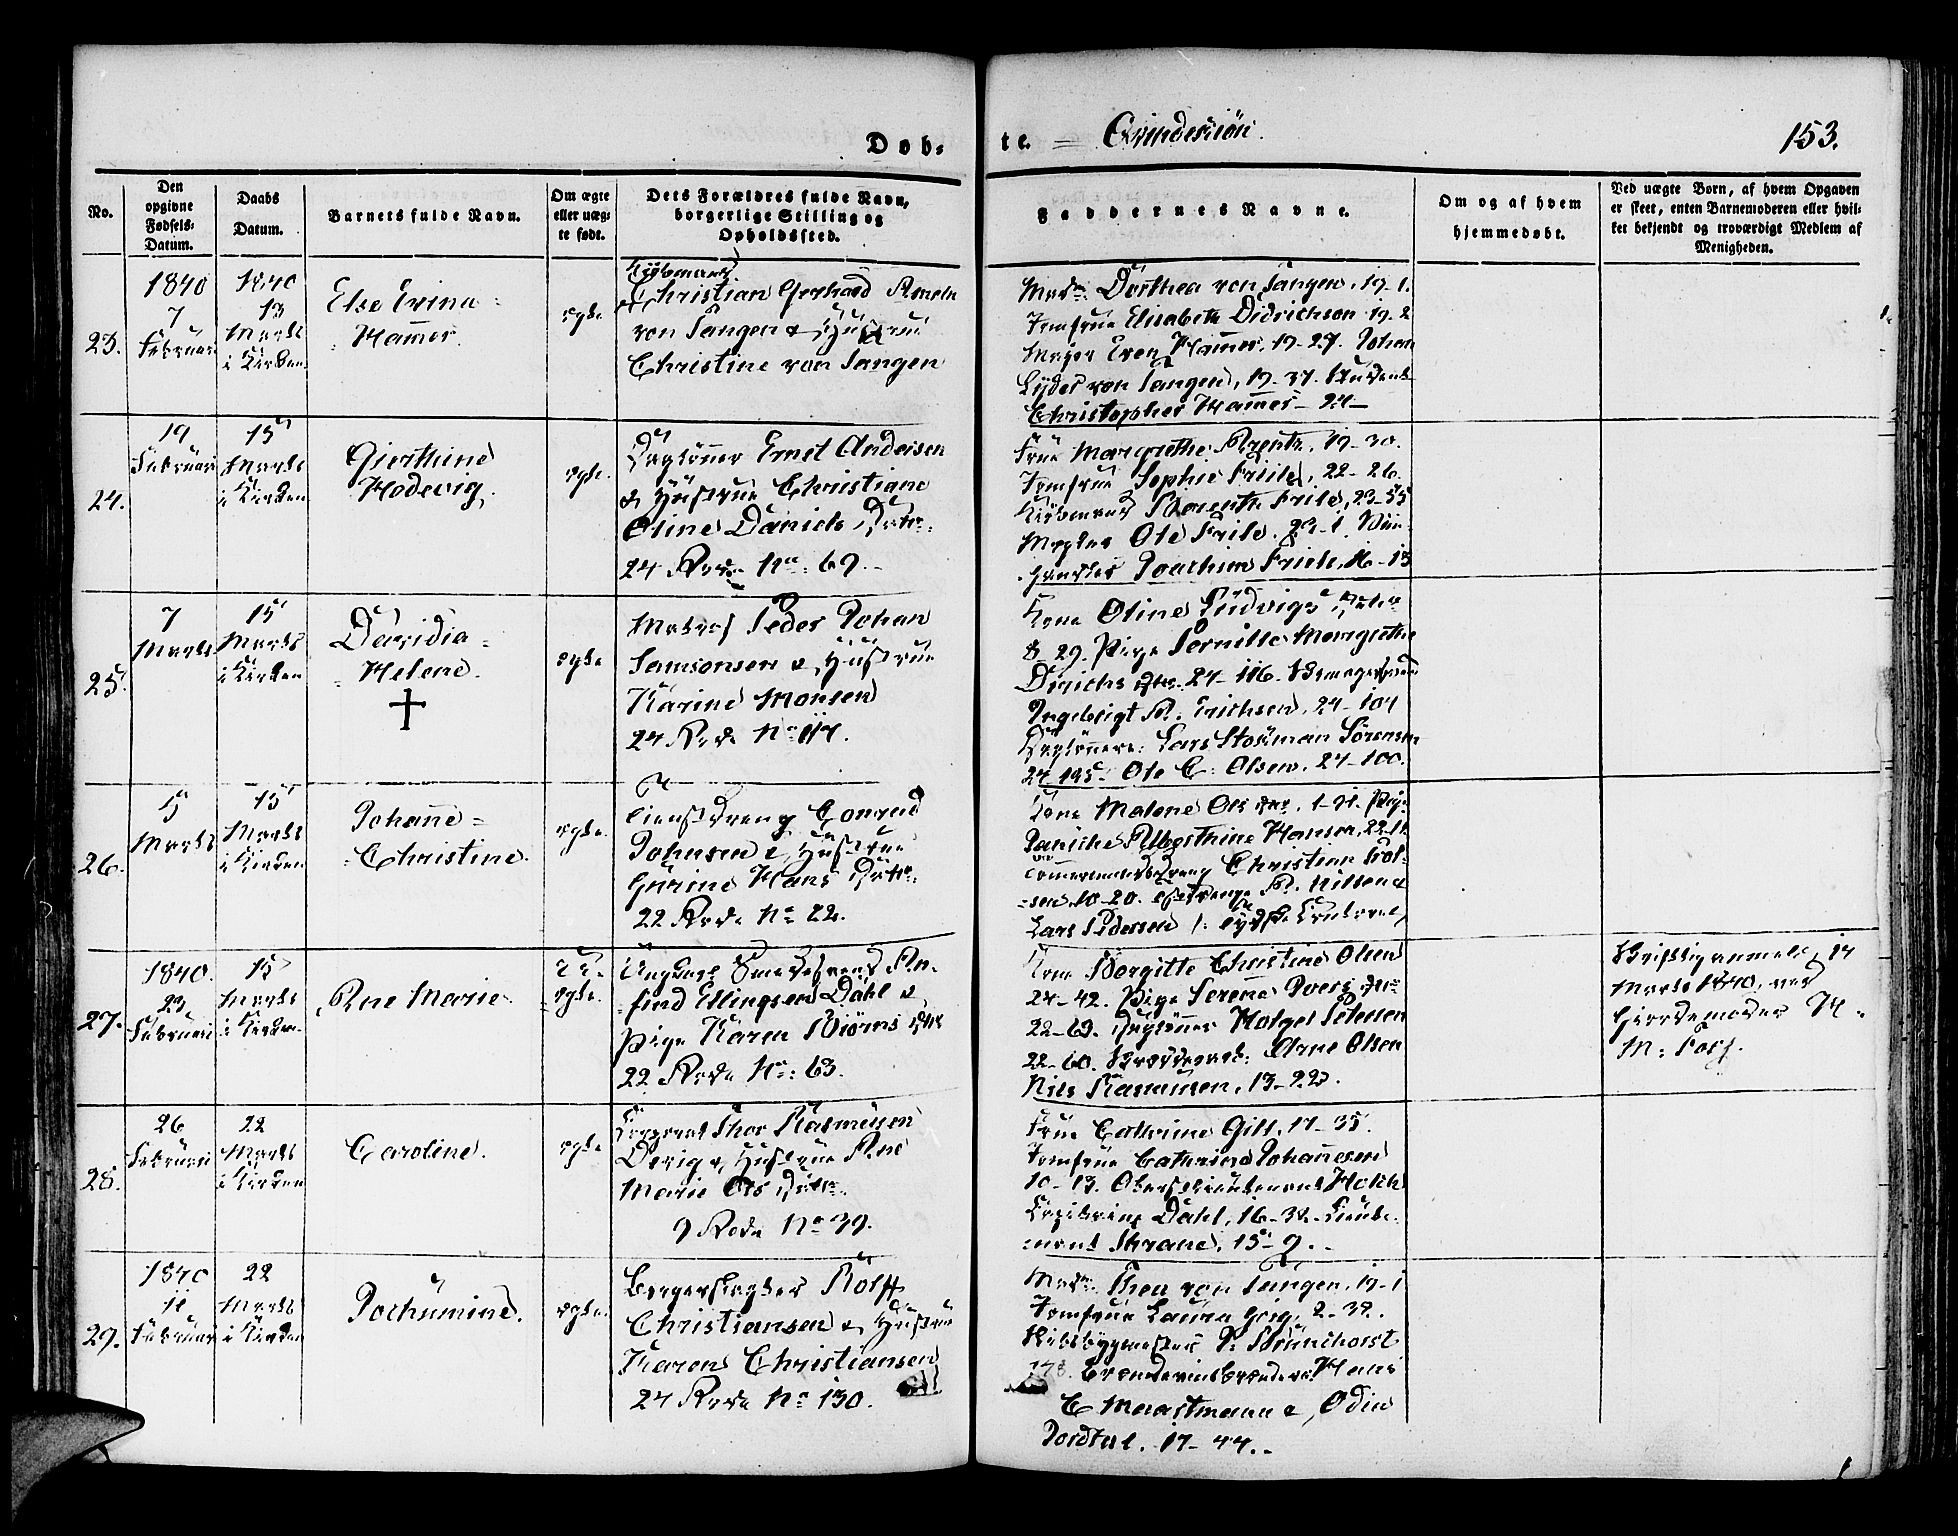 Døb-
te. = Qvindekiön.
153.
No.
Den opgivne Fødsels-Datum.
Daabs Datum.
Barnets fulde Navn.
Om ægte eller uæg-te født.
Dets Forældres fulde Navn, borgerlige Stilling og Opholdssted.
Faddernes Navne.
Om og af hvem hjemmedøbt.
Ved uægte Børn, af hvem Opgaven er skeet, enten Barnemoderen eller hvil-ket bekjendt og troværdigt Medlem af Menigheden.
23.
1840
7
Februari
1840
13
Marts
i Kirken
Else Evina
Ham̄er.
ægte
Kjøbmand
Christian Gerhard Ameln
von Tangen & Hustrue
Christine von Tangen
Mad: Dorthea von Tangen, 19-1.
Jomfrue Elisabeth Didrichson 19-2
Major Even Ham̄er, 19-27. Johan
Lyder von Tangen, 19-37. Student
Christopher Ham̄er - 24-
24.
19
Februari
15
Marts
i Kirken
Gjerthine
Hedevig.
ægte.
Dagløn̄er Ernst Andersen
& Hustrue Christiane
Oline Daniels Datr:
24 Rode No: 69.
Frue Margrethe Arentz, 19-30.
Jomfrue Sophie Friele, 22-26.
Kjøbmand Berenth Friele, 23-55
Mægler Ole Friele, 23-1.
Joachim Friele, 16-13
25.
7
Marts
15
Marts
i Kirken
Davidia
Helene.
ægte
Matros Peder Johan
Samsonsen & Hustrue
Karine Monsen
24 Rode No 114.
Kone Oline Ludvigs Datr
8-29. Pige Pernille Margrethe
Dirichs Dtr. 24-116.
Ingebrigt A. Erichsen, 24-104
Dagløn̄ere: Lars Stockman Sörensen
24-125. Ole C: Olsen. 24-100.
26.
13
Marts
15
Marts
i Kirken
Johan̄e
Christine.
ægte.
Tienestdreng Conrad
Johnsen & Hustrue
Gurine Hans Datr:
22 Rode No 22.
Kone Malene Ols Dtr. 1-31. Pige
Janiche Albertine Hansen, 22-11
Tømmermandsdreng Christian Tol-
sen. 10-20. A. Nilsen &
Lars Pedersen
27.
1840.
23
Februari
15
Marts
i Kirken
Ane Marie
Uægte.
Ungkarl Smedesvend An-
find Ellingsen Dahl &
Pige Karen Biörns Dtr
22 Rode No: 63.
Kone Borgitte Christine Olsen
24-42. Pige Serena Ivers Dtr
22-63. Dagløn̄er Holger Petersen
22-60. Arne Olsen
Nils Rasmusen, 13-22.
Skriftlig anmeldt, 14
Marts 1840, ved
Giordemoder M.
M: Foss.
28.
26
Februari
22
Marts
i Kirken
Caroline.
ægte
Corporal Thor Rasmusen
Devig & Hustrue Ane
Marie Ols Datr.
9 Rode No 39.
Frue Cathrine Gill, 17-35.
Jomfrue Cathrine Johan̄esen
10-13. Oberstlieutenant Holck
Capitaine Dahl, 16-38. Lieute-
nant Krane, 15-9.
29.
1840
11
Februari
22
Marts
i Kirken
Jochumine.
ægte.
Borgerfægter Rolff
Christiansen & Hustrue
Karen Christiansen
24 Rode No 130.
Mad: Thea von Tangen, 19-1
Jomfrue Laura Grig, 2-38.
Skibsbygmester J. Brunchorst
178. Hans
C Maartmann & Odin
17-44.